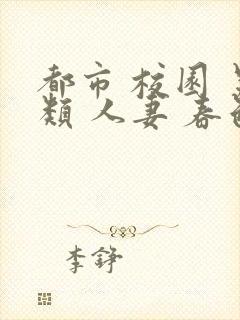 都市 校园
類 人妻 春
李錚